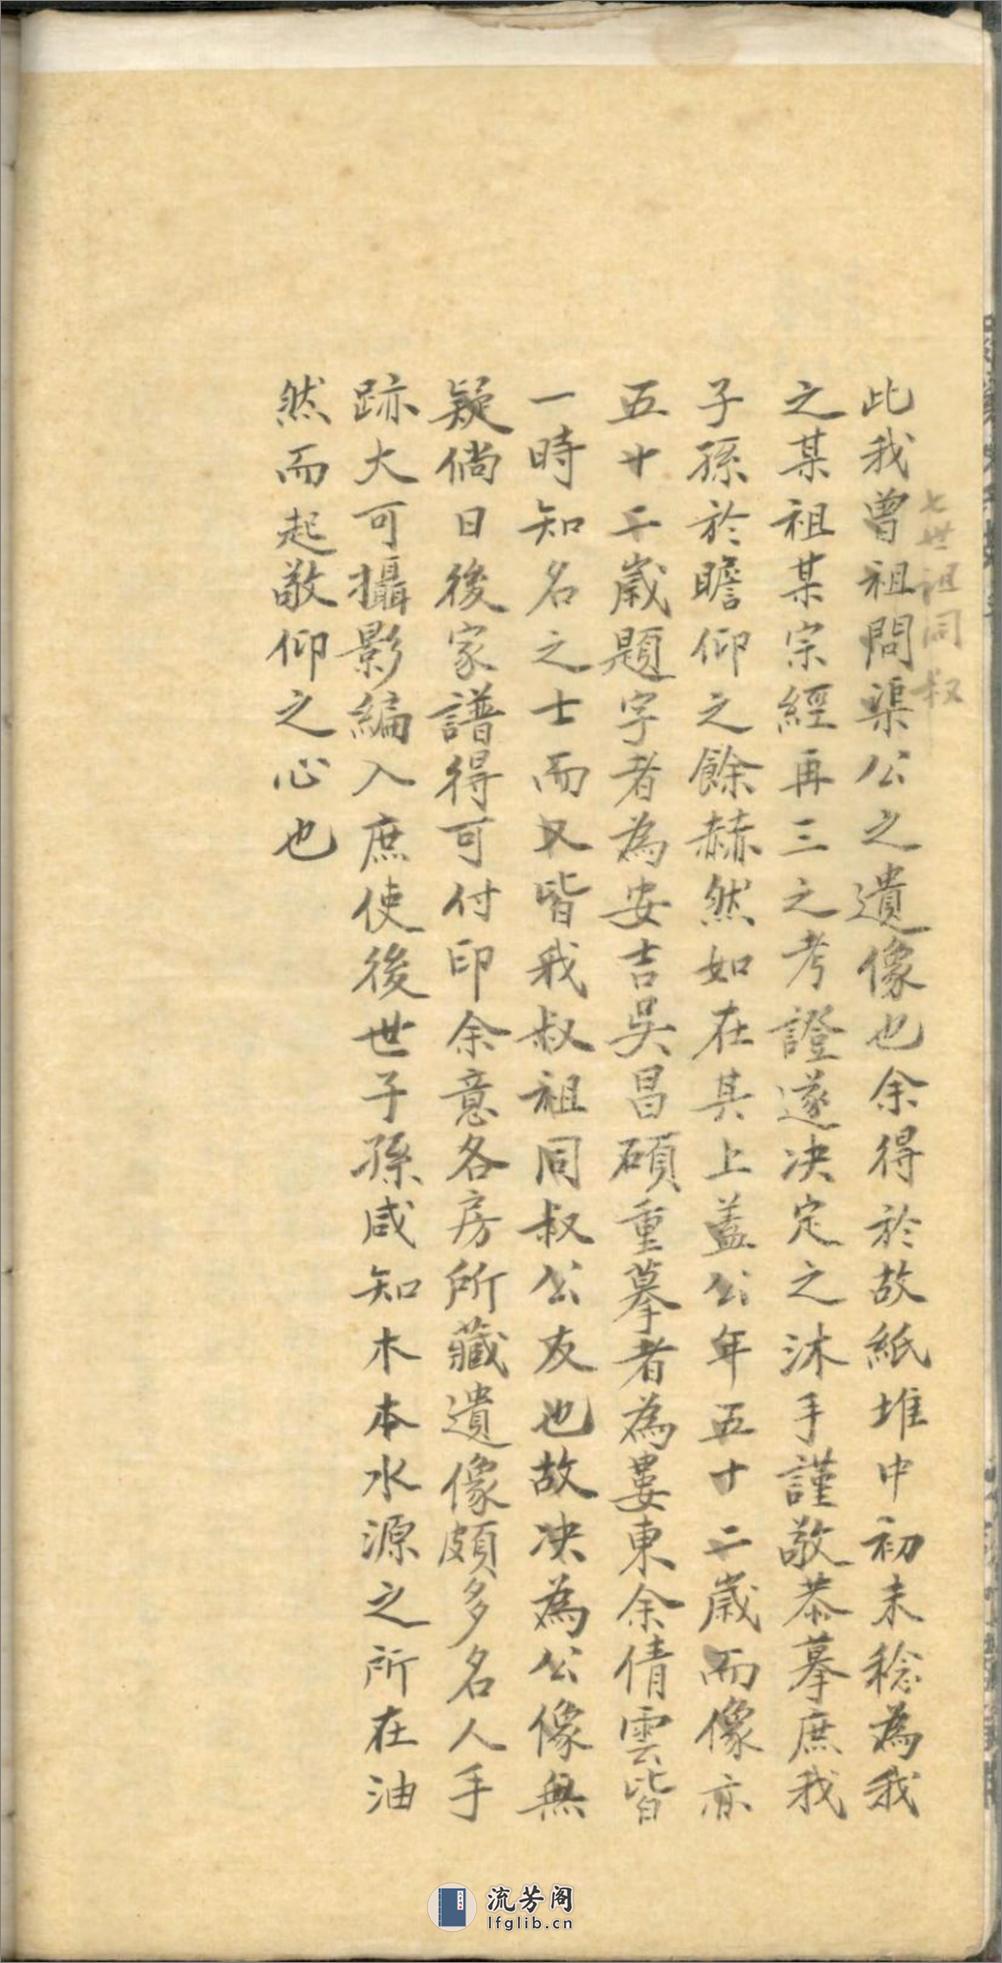 七世祖同叔
此我曾祖問渠公之遺像也余得於故紙堆中初未稔為我
之某祖某宗經再三之考證遂决定之沐手謹敬恭摹庶我
子孫於瞻仰之餘赫然如在其上蓋公年五十二歲而像亦
五十二歲題字者為安吉吳昌碩重摹者為婁東余倩雲皆
一時知名之士而又皆我叔祖同叔公友也故决為公像無
疑倘日後家譜得可付印余意各房所藏遺像頗多名人手
跡大可攝影編入庶使後世子孫咸知木本水源之所在油
然而起敬仰之心也
流芳阁
lfglib.cn